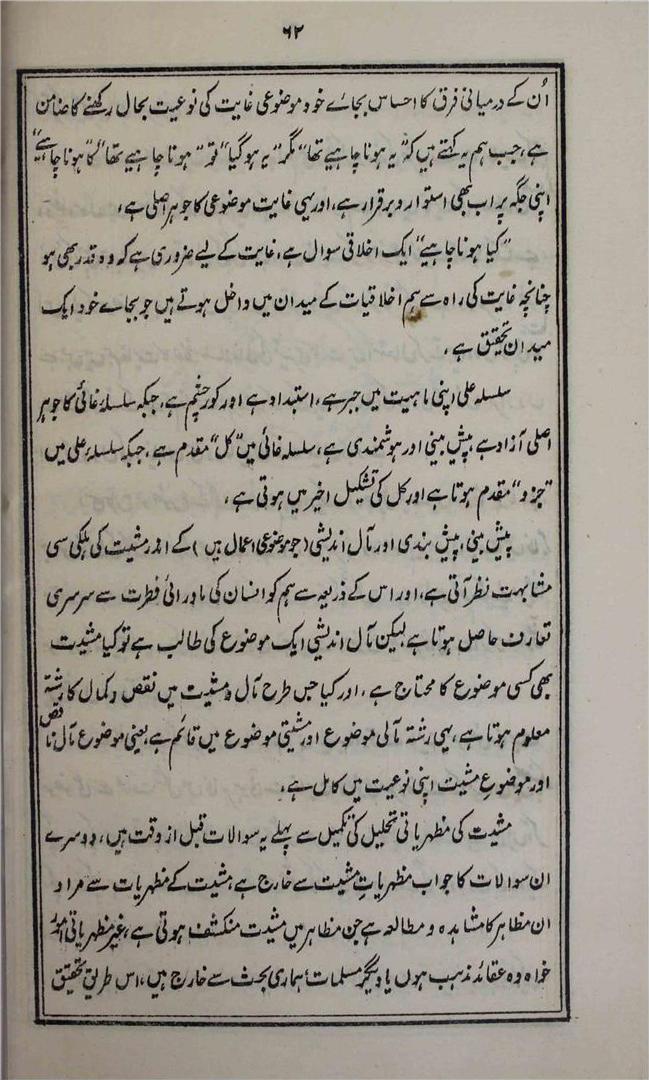 ۶۲
اُن کے درمیانی فرق کا احساس بجائے خود موضوعی غایت کی نوعیت بحال رکھنے کا ضامن
ہے، جب ہم یہ کہتے ہیں کہ "یہ ہونا چاہیے تھا" مگر "یہ ہو گیا" تو "ہونا چاہیے تھا" کا "ہونا چاہیے"
اپنی جگہ پر اب بھی استوار و برقرار ہے، اور یہی غایت موضوعی کا جوہر اصلی ہے،
"کیا ہونا چاہیے" ایک اخلاقی سوال ہے، غایت کے لیے ضروری ہے کہ وہ قدر بھی ہو
چنانچہ غایت کی راہ سے ہم اخلاقیات کے میدان میں داخل ہوتے ہیں جو بجائے خود ایک
میدان تحقیق ہے،
سلسلہ علی اپنی ماہیت میں جبر ہے، استبداد ہے اور کور چشم ہے، جبکہ سلسلۂ غائی کا جوہر
اصلی آزاد ہے، پیش بینی اور ہوشمندی ہے، سلسلہ غائی میں "کل" مقدم ہے، جبکہ سلسلۂ علی میں
"جزو" مقدم ہوتا ہے اور کل کی تشکیل اخیر میں ہوتی ہے،
پیش بینی، پیش بندی اور مآل اندیشی (جو موضوعی اعمال ہیں) کے اندر مشیت کی ہلکی سی
مشابہت نظر آتی ہے، اور اس کے ذریعہ سے ہم کو انسان کی ماورائی فطرت سے سرسری
تعارف حاصل ہوتا ہے لیکن مآل اندیشی ایک موضوع کی طالب ہے تو کیا مشیت
بھی کسی موضوع کا محتاج ہے، اور کیا جس طرح مآل و مشیت میں نقص و کمال کا رشتہ
معلوم ہوتا ہے، یہی رشتہ مآلی موضوع اور مشیتی موضوع میں قائم ہے، یعنی موضوع مآل ناقص
اور موضوعِ مشیت اپنی نوعیت میں کامل ہے،
مشیت کی مظہریاتی تحلیل کی تکمیل سے پہلے یہ سوالات قبل از وقت ہیں، دوسرے
ان سوالات کا جواب مظہریاتِ مشیت سے خارج ہے، مشیت کے مظہریات سے مراد
ان مظاہر کا مشاہدہ و مطالعہ ہے جن مظاہر میں مشیت منکشف ہوتی ہے، غیر مظہریاتی امور
خواہ وہ عقائد مذہب ہوں یا دیگر مسلمات، ہماری بحث سے خارج ہیں، اس طریق تحقیق